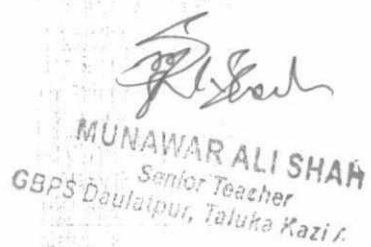 MUNAWAR ALI SHAH
Senior Teacher
GBPS Daulatpur, Taluka Kazi A